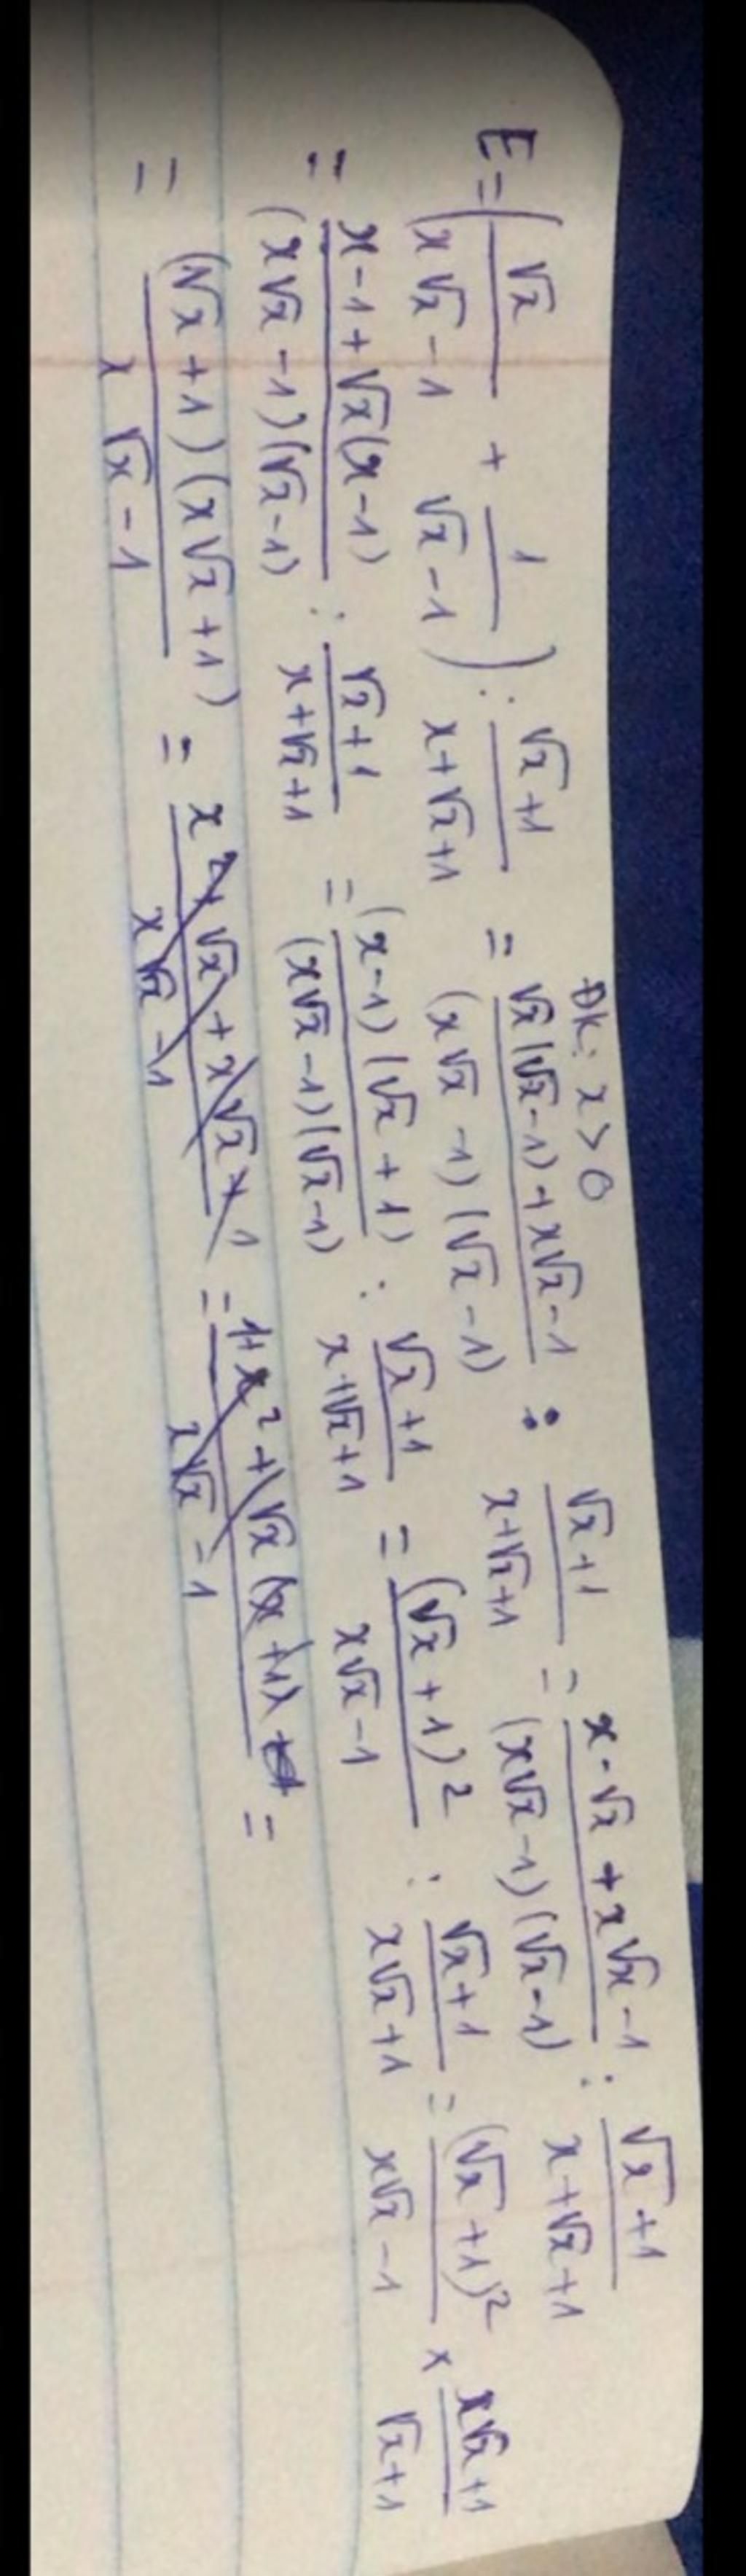 ĐK: x > 0
E = (√x / (x√x - 1) + 1 / (√x - 1)) : (√x + 1) / (x + √x + 1) = (√x (√x - 1) + x√x - 1) / ((x√x - 1) (√x - 1)) : (√x + 1) / (x + √x + 1) = (x - √x + x√x - 1) / ((x√x - 1) (√x - 1)) : (√x + 1) / (x + √x + 1)
= (x - 1 + √x (x - 1)) / ((x√x - 1) (√x - 1)) : (√x + 1) / (x + √x + 1) = ((x - 1) (√x + 1)) / ((x√x - 1) (√x - 1)) : (√x + 1) / (x + √x + 1) = (√x + 1)² / (x√x - 1) : (√x + 1) / (x√x + 1) = (√x + 1)² / (x√x - 1) × (x√x + 1) / (√x + 1)
= ((√x + 1) (x√x + 1)) / (x√x - 1) = (x² + √x + x√x + 1) / (x√x - 1) = (1 + x² + √x (x + 1)) / (x√x - 1) =